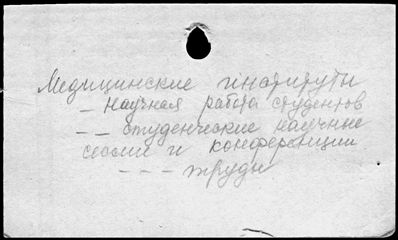 Медицинские институты
– научная работа студентов
– – студенческие научные
сессии и конференции
– – – труды